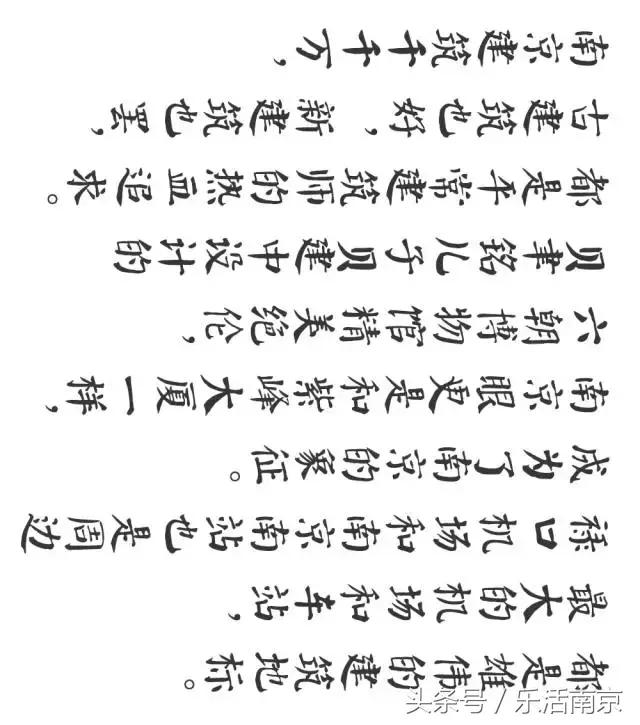 南京建筑千千万，
古建筑也好，新建筑也罢，
都是平常建筑师的热血追求。
贝聿铭儿子贝建中设计的
六朝博物馆精美绝伦，
南京眼更是和紫峰大厦一样，
成为了南京的象征。
禄口机场和南京南站也是周边
最大的机场和车站，
都是雄伟的建筑地标。
头条号 / 乐活南京